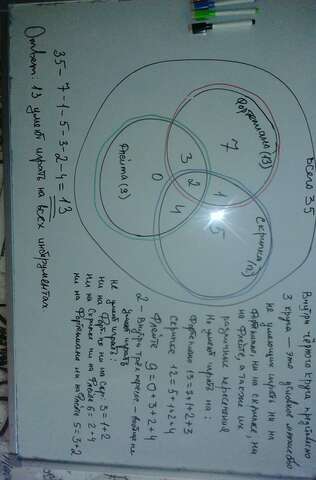 Всего 35
Фортепиано (13)
7
3
1
2
0
4
5
Флейта (9)
Скрипка (12)
Внутри чёрного круга
3 круга — это условное множество
не умеющих играть ни на
фортепиано, ни на скрипке, ни
на флейте, а также их
различные пересечения
Не умеют играть на:
Фортепиано 13=7+1+2+3
Скрипке 12=5+1+2+4
Флейте 9=0+3+2+4
2 - внутри трёх кругов - вообще не
умеют играть
Не умеют играть:
ни на Форт. ни на Скр: 3=1+2
ни на Скрипке ни на Флейте 6=2+4
ни на Фортепиано ни на Флейте 5=3+2
35-7-1-5-3-2-4=13
Ответ: 13 умеют играть на всех инструментах